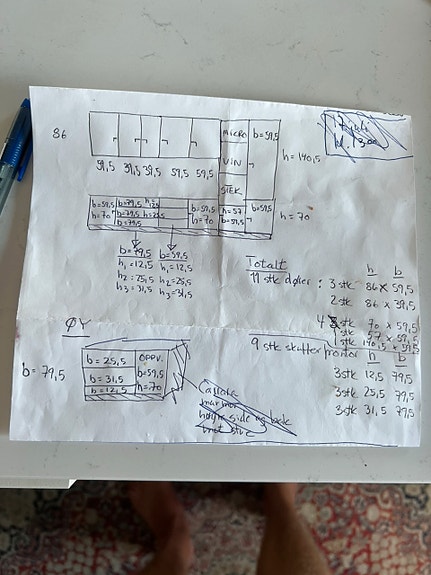 86
MICRO b=59,5
VIN
STEK
h=140,5
59,5 39,5 39,5 59,5 59,5
b=59,5 b=79,5 h=12,5 b=59,5 h=57 b=59,5
h=70 b=79,5 h=25,5 h=70 b=59,5
b=79,5
h=70
b=79,5 b=59,5
h₁=12,5 h₁=12,5
h₂=25,5 h₂=25,5
h₃=31,5 h₃=31,5
Totalt h b
11 stk dører: 3 stk 86 x 59,5
2 stk 86 x 39,5
4 stk 70 x 59,5
1 stk 57 x 59,5
1 stk 140,5 x 59,5
9 stk skuffefronter h b
3 stk 12,5 79,5
3 stk 25,5 79,5
3 stk 31,5 79,5
ØY
b=79,5
b=25,5 OPPV.
b=31,5 b=59,5
b=12,5 h=70
marmor